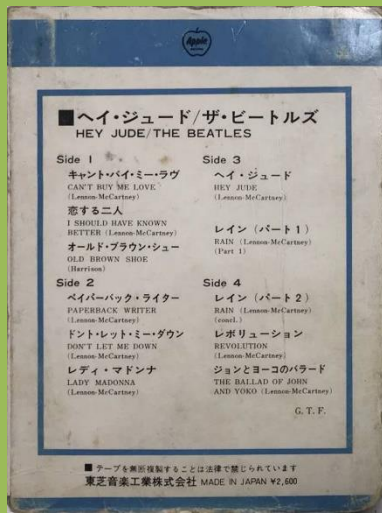 Apple
■ヘイ・ジュード/ザ・ビートルズ
HEY JUDE/THE BEATLES
Side 1
キャント・バイ・ミー・ラヴ
CAN'T BUY ME LOVE
(Lennon-McCartney)
恋する二人
I SHOULD HAVE KNOWN
BETTER (Lennon-McCartney)
オールド・ブラウン・シュー
OLD BROWN SHOE
(Harrison)
Side 2
ペイパーバック・ライター
PAPERBACK WRITER
(Lennon-McCartney)
ドント・レット・ミー・ダウン
DON'T LET ME DOWN
(Lennon-McCartney)
レディ・マドンナ
LADY MADONNA
(Lennon-McCartney)
Side 3
ヘイ・ジュード
HEY JUDE
(Lennon-McCartney)
レイン (パート1)
RAIN (Lennon-McCartney)
(Part 1)
Side 4
レイン (パート2)
RAIN (Lennon-McCartney)
(concl.)
レボリューション
REVOLUTION
(Lennon-McCartney)
ジョンとヨーコのバラード
THE BALLAD OF JOHN
AND YOKO (Lennon-McCartney)
G. T. F.
■テープを無断複製することは法律で禁じられています
東芝音楽工業株式会社 MADE IN JAPAN ¥2,600